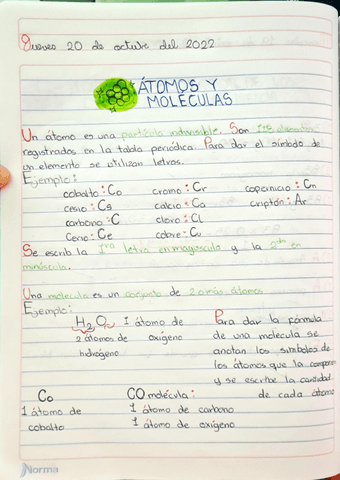 Jueves 20 de octubre del 2022
ÁTOMOS Y
MOLÉCULAS
Un átomo es una partícula indivisible. Son 118 elementos
registrados en la tabla periódica. Para dar el símbolo de
un elemento se utilizan letras.
Ejemplo:
cobalto: Co cromo: Cr copernicio: Cn
cesio: Cs calcio: Ca criptón: Ar
carbono: C cloro: Cl
Cerio: Ce cobre: Cu
Se escrib la 1ra letra en mayuscula y la 2da en
minúscula.
Una molécula es un conjunto de 2 o más átomos
Ejemplo:
H2O 1 átomo de oxígeno
2 átomos de hidrógeno
Para dar la fórmula
de una molécula se
anotan los símbolos de
los átomos que la componen
y se escribe la cantidad
de cada átomo
Co
1 átomo de
cobalto
CO molécula:
1 átomo de carbono
1 átomo de oxígeno
Norma